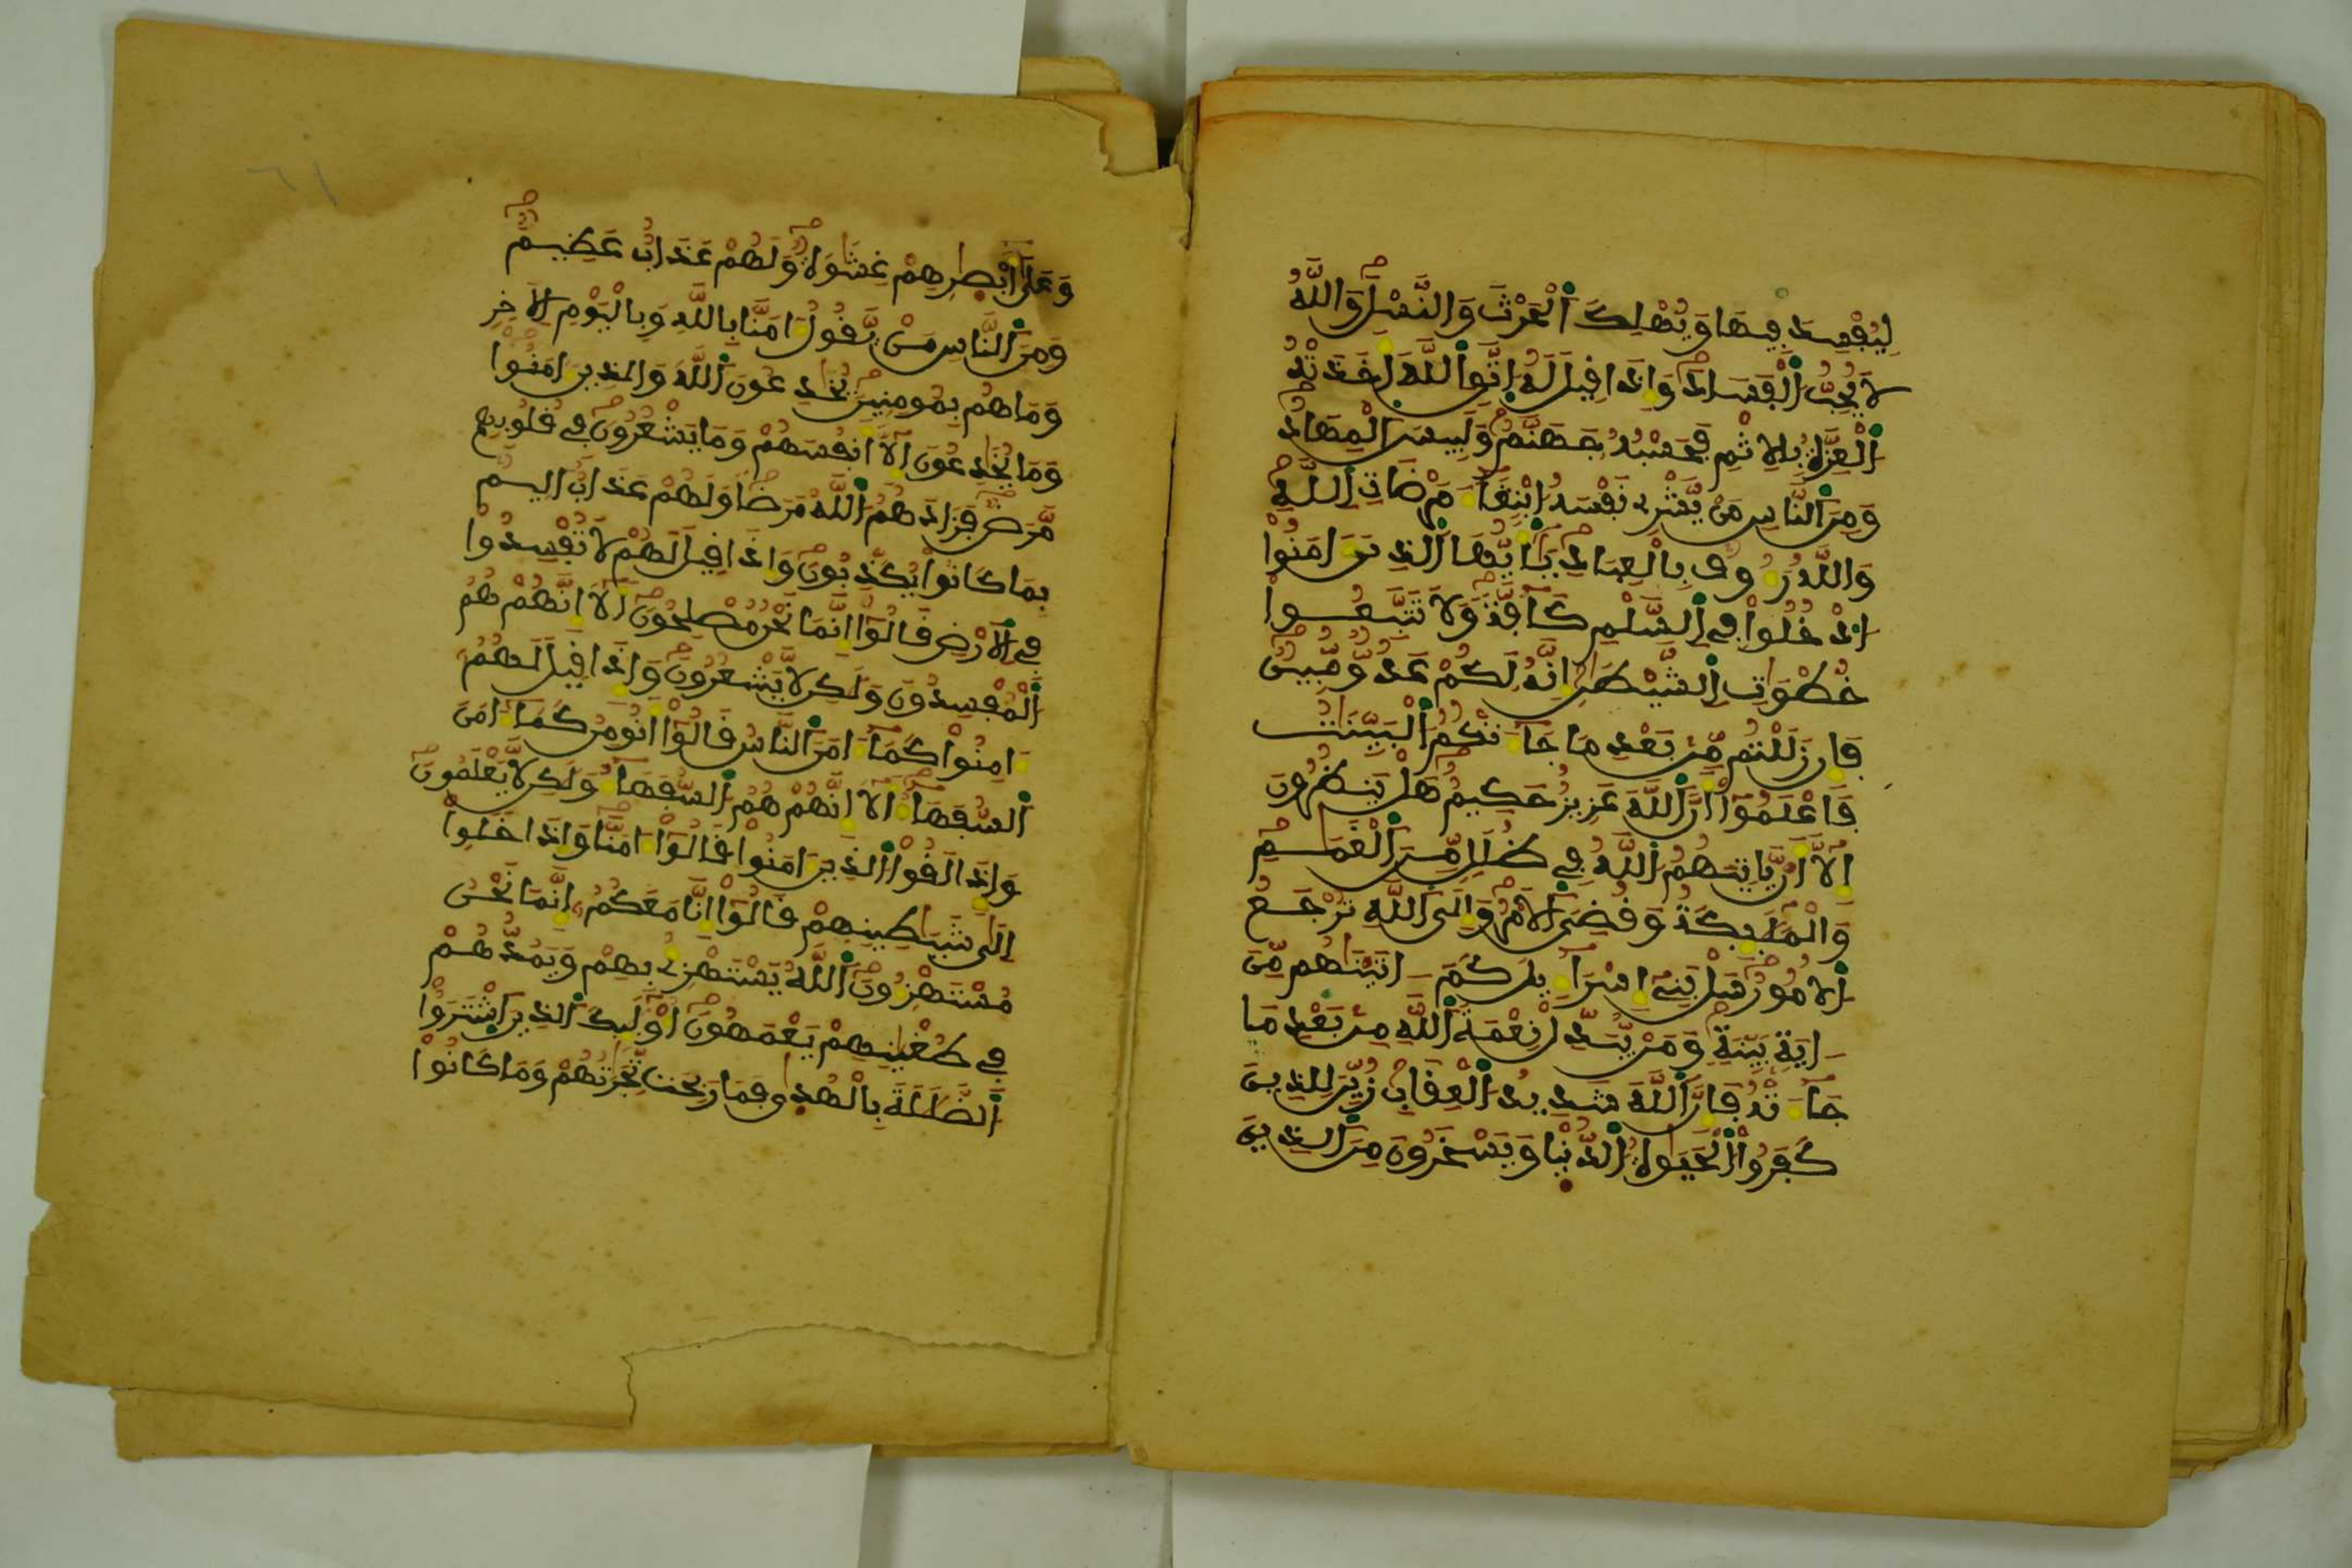 لِيُفْسِدَ فِيهَا وَيُهْلِكَ اَ۬لْحَرْثَ وَالنَّسْلَ وَاللَّهُ
لَا يُحِبُّ اُ۬لْفَسَادَ وَإِذَا قِيلَ لَهُ اُ۪تَّقِ اِ۬للَّهَ أَخَذَتْهُ
اُ۬لْعِزَّةُ بِالِاثْمِ فَحَسْبُهُ جَهَنَّمُ وَلَبِيسَ اَ۬لْمِهَادُ
وَمِنَ اَ۬لنَّاسِ مَنْ يَّشْرِے نَفْسَهُ اُ۪بْتِغَآءَ مَرْضَاتِ اِ۬للَّهِ
وَاللَّهُ رَءُوفٌ بِالْعِبَادِ يَٰٓأَيُّهَا اَ۬لذِينَ ءَامَنُواْ
اُ۟دْخُلُواْ فِے اِ۬لسَّلْمِ كَآفَّةً وَلَا تَتَّبِعُواْ
خُطْوَٰتِ اِ۬لشَّيْطَٰنِ إِنَّهُ لَكُمْ عَدُوٌّ مُّبِينٌ
فَإِن زَلَلْتُم مِّنۢ بَعْدِ مَا جَآءَتْكُمُ اُ۬لْبَيِّنَٰتُ
فَاعْلَمُوٓاْ أَنَّ اَ۬للَّهَ عَزِيزٌ حَكِيمٌ هَلْ يَنظُرُونَ
إِلَّآ أَنْ يَّاتِيَهُمُ اُ۬للَّهُ فِے ظُلَلٍ مِّنَ اَ۬لْغَمَٰمِ
وَالْمَلَٰٓئِكَةُ وَقُضِيَ اَ۬لَامْرُ وَإِلَى اَ۬للَّهِ تُرْجَعُ
اُ۬لُامُورُ سَلْ بَنِےٓ إِسْرَآءِيلَ كَمَ ـ اتَيْنَٰهُم مِّنَ
ـ ايَةٍ بَيِّنَةٍ وَمَنْ يُّبَدِّلْ نِعْمَةَ اَ۬للَّهِ مِنۢ بَعْدِ مَا
جَآءَتْهُ فَإِنَّ اَ۬للَّهَ شَدِيدُ اُ۬لْعِقَابِ زُيِّنَ لِلذِينَ
كَفَرُواْ اُ۬لْحَيَوٰةُ اُ۬لدُّنْيَا وَيَسْخَرُونَ مِنَ اَ۬لذِينَ
٦١
وَعَلَىٰٓ أَبْصٰرِهِمْ غِشَٰوَةٌ وَلَهُمْ عَذَابٌ عَظِيمٌ
وَمِنَ اَ۬لنَّاسِ مَنْ يَّقُولُ ءَامَنَّا بِاللَّهِ وَبِالْيَوْمِ اِ۬لَاخِرِ
وَمَا هُم بِمُومِنِينَ يُخَٰدِعُونَ اَ۬للَّهَ وَالذِينَ ءَامَنُواْ
وَمَا يُخَٰدِعُونَ إِلَّآ أَنفُسَهُمْ وَمَا يَشْعُرُونَ فِے قُلُوبِهِم
مَّرَضٌ فَزَادَهُمُ اُ۬للَّهُ مَرَضاً وَلَهُمْ عَذَابٌ اَلِيمٌ
بِمَا كَانُواْ يُكَذِّبُونَ وَإِذَا قِيلَ لَهُمْ لَا تُفْسِدُواْ
فِے اِ۬لَارْضِ قَالُوٓاْ إِنَّمَا نَحْنُ مُصْلِحُونَ أَلَآ إِنَّهُمْ هُمُ
اُ۬لْمُفْسِدُونَ وَلَٰكِن لَّا يَشْعُرُونَ وَإِذَا قِيلَ لَهُمُۥٓ
ءَامِنُواْ كَمَآ ءَامَنَ اَ۬لنَّاسُ قَالُوٓاْ أَنُومِنُ كَمَآ ءَامَنَ
اَ۬لسُّفَهَآءُ أَلَآ إِنَّهُمْ هُمُ اُ۬لسُّفَهَآءُ وَلَٰكِن لَّا يَعْلَمُونَ
وَإِذَا لَقُواْ اُ۬لذِينَ ءَامَنُواْ قَالُوٓاْ ءَامَنَّا وَإِذَا خَلَوِاْ
اِلَىٰ شَيَٰطِينِهِمْ قَالُوٓاْ إِنَّا مَعَكُمُۥٓ إِنَّمَا نَحْنُ
مُسْتَهْزِءُونَ اَ۬للَّهُ يَسْتَهْزِےُ بِهِمْ وَيَمُدُّهُمْ
فِے طُغْيَٰنِهِمْ يَعْمَهُونَ أُوْلَٰٓئِكَ اَ۬لذِينَ اَ۪شْتَرَوُاْ
اُ۬لضَّلَٰلَةَ بِالْهُدَىٰ فَمَا رَبِحَت تِّجَٰرَتُهُمْ وَمَا كَانُواْ